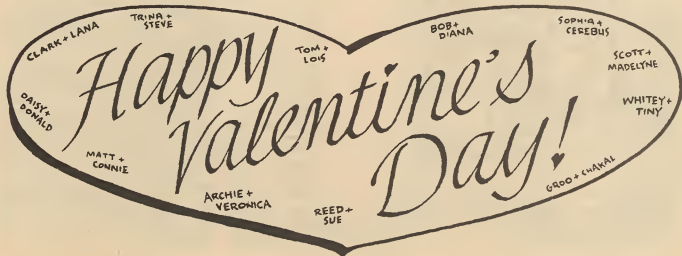 CLARK + LANA
TRINA +
STEVE
TOM +
LOIS
BOB +
DIANA
SOPHIA +
CEREBUS
SCOTT +
MADELYNE
DAISY +
DONALD
Happy
Valentine's
Day!
WHITEY +
TINY
MATT +
CONNIE
ARCHIE +
VERONICA
REED +
SUE
GROO + CHAKAL